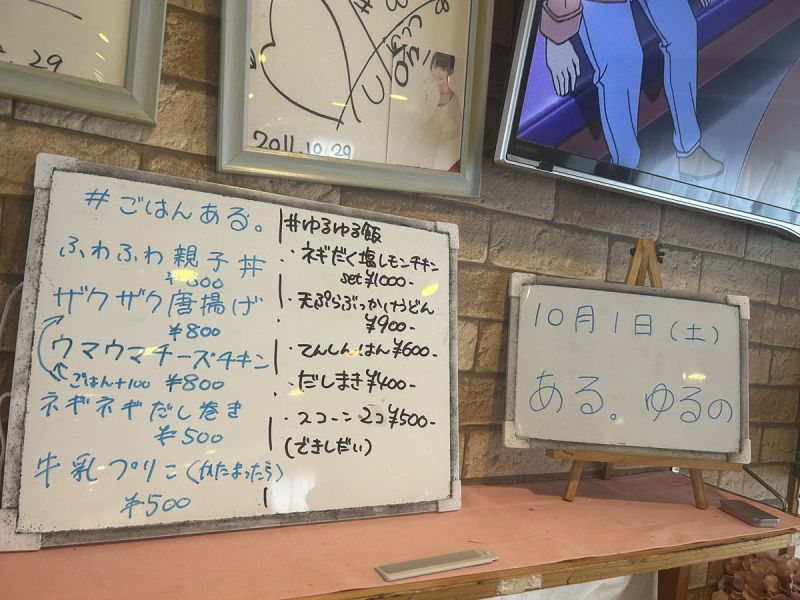 29
2011.10.29
#ごはんある。
ふわふわ親子丼
ザクザク唐揚げ
¥800
ウマウマチーズチキン
ごはん+100 ¥800
ネギネギだし巻き
¥500
牛乳プリこ(かたまったら)
¥500
#ゆるゆる飯
・ネギだく塩レモンチキン
set¥1000-
・天ぷらぶっかけうどん
¥900-
・てんしんはん¥600-
・だしまき¥400-
・スコーン2コ¥500-
(できしだい)
10月1日(土)
ある。ゆるの